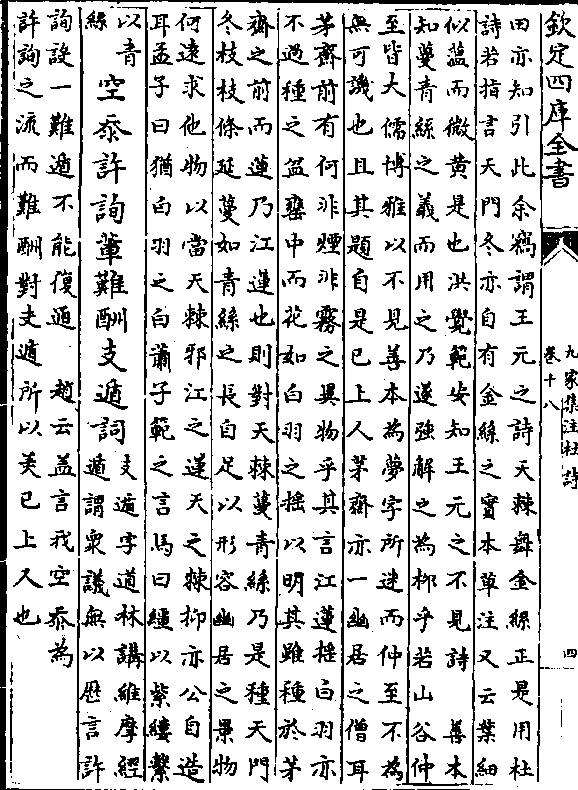 欽定四庫全書
九家集注杜詩
卷十八
四
田亦知引此余竊謂王元之詩天棘舞金絲正是用杜
詩若指書天門冬亦自有金絲之實本草注又云葉細
似蕰而微黄是也洪覺範安知王元之不見詩 善本
知蔓青絲之義而用之乃遂強解之為柳乎若山谷仲
至皆大儒博雅以不見善本為夢字所迷而仲至不為
無可譏也且其題自是已上人茅齋亦一幽居之僧耳
茅齋前有何非煙非霧之異物乎其言江蓮揺白羽亦
不過種之盆甕中而花如白羽之揺以明其雖種於茅
齋之前而蓮乃江蓮也則對天棘蔓青絲乃是種天門
冬枝枝條延蔓如青絲之長自足以形容幽居之景物
何遠求他物以當天棘邪江之蓮天之棘抑亦公自造
耳孟子曰猶白羽之白蕭子範之言馬曰纒以紫縷繫
以青
絲
空忝許詢輩難酬支遁詞
支遁字道林講維摩經
遁謂衆議無以厯言許
詢設一難遁不能復通 趙云蓋言我空忝為
許詢之流而難酬對支遁所以美已上人也